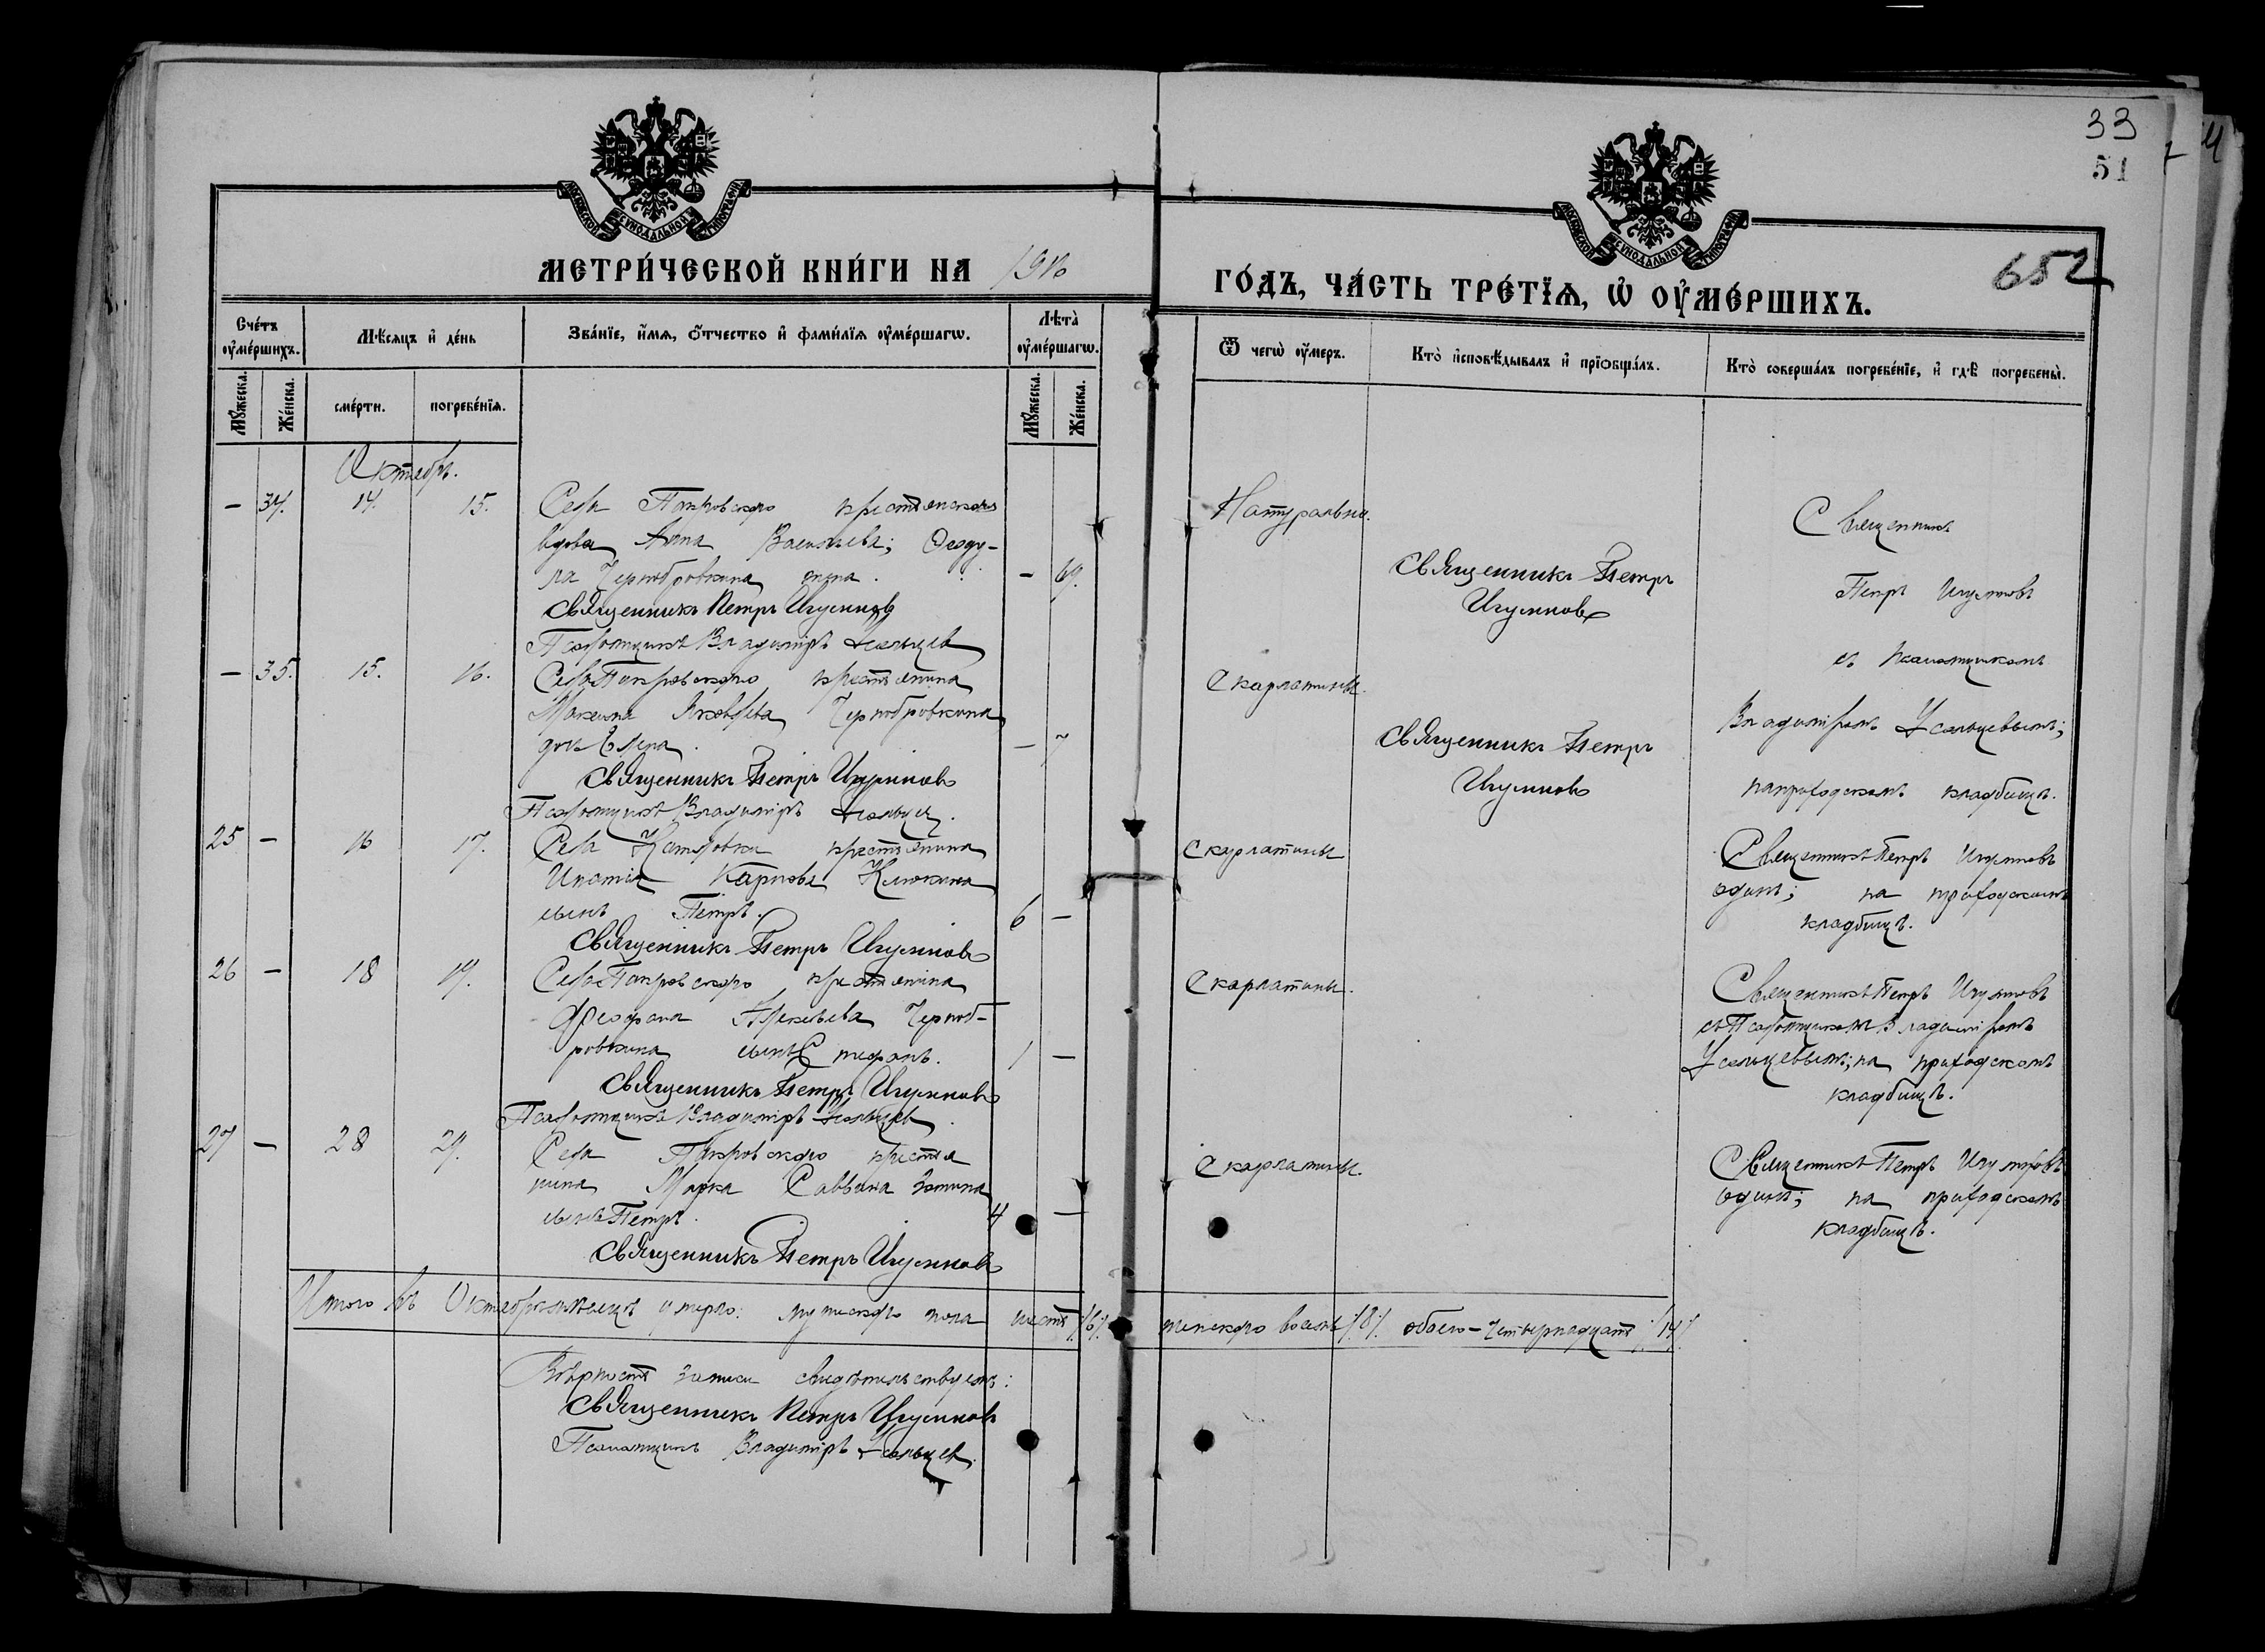 33
51
652
МОСКОВСКОЙ СУНОДАЛЬНОЙ ТИПОГРАФІИ
МОСКОВСКОЙ СУНОДАЛЬНОЙ ТИПОГРАФІИ
МЕТРИ́ЧЕСКОЙ КНИ́ГИ НА 1910
ГО́ДЪ, ЧА́СТЬ ТРЕ́ТІѦ, Ѡ҆ ОУ҆МЕ́РШИХЪ.
Сче́тъ оу҆ме́ршихъ.
Мѣ́сяцъ и҆ де́нь
Зва́нїе, и҆́мѧ, ѻ҆́тчество и҆ фами́лїѧ оу҆ме́ршагѡ.
Лѣ̑та оу҆ме́ршагѡ.
Ѿ чегѡ̀ оу҆́меръ.
Кто̀ и҆сповѣ́дывалъ и҆ прїѻбща́лъ.
Кто̀ соверша́лъ погребе́нїе, и҆ гдѣ̀ погребены̀.
Мꙋ́жеска.
Же́нска.
сме́рти.
погребе́нїѧ.
Мꙋ́жеска.
Же́нска.
Октябрь.
— 34. 14. 15. Села Покровскаго крестьянская
вдова Анна Васильева; Феоду-
ла Чернобровкина жена. — 69.
Священникъ Петръ Игумновъ
Псаломщикъ Владиміръ Усольцев
Натурально.
Священникъ Петръ
Игумновъ
Священникъ
Петръ Игумновъ
съ псаломщикомъ
Владиміромъ Усольцевымъ;
на приходскомъ кладбищѣ.
— 35. 15. 16. Села Покровскаго крестьянина
Максима Яковлева Чернобровкина
дочь Елена. — 7
Священникъ Петръ Игумновъ
Псаломщикъ Владиміръ Усольцев.
Скарлатины.
Священникъ Петръ
Игумновъ
25 — 16 17. Села крестьянина
Ипатія Карпова Клюкина
сынъ Петръ. 6 —
Священникъ Петръ Игумновъ
Скарлатины
Священникъ Петръ Игумновъ
одинъ; на приходскомъ
кладбищѣ.
26 — 18 19. Села Покровскаго крестьянина
Феофана Алексѣева Черноб-
ровкина сынъ Стефанъ. 1 —
Священникъ Петръ Игумновъ
Псаломщикъ Владиміръ Усольцев.
Скарлатины.
Священникъ Петръ Игумновъ
съ Псаломщикомъ Владиміромъ
Усольцевымъ; на приходскомъ
кладбищѣ.
27 — 28 29. Села Покровскаго крестья
нина Марка Саввина Зотина
сынъ Петръ. 4 —
Священникъ Петръ Игумновъ
Скарлатины.
Священникъ Петръ Игумновъ
одинъ; на приходскомъ
кладбищѣ.
Итого въ Октябрѣ мѣсяцѣ умерло: мужескаго пола шесть /6/. женскаго восемь /8/. обоего — четырнадцать /14/.
Вѣрность записи свидѣтельствуемъ:
Священникъ Петръ Игумновъ
Псаломщикъ Владиміръ Усольцев.